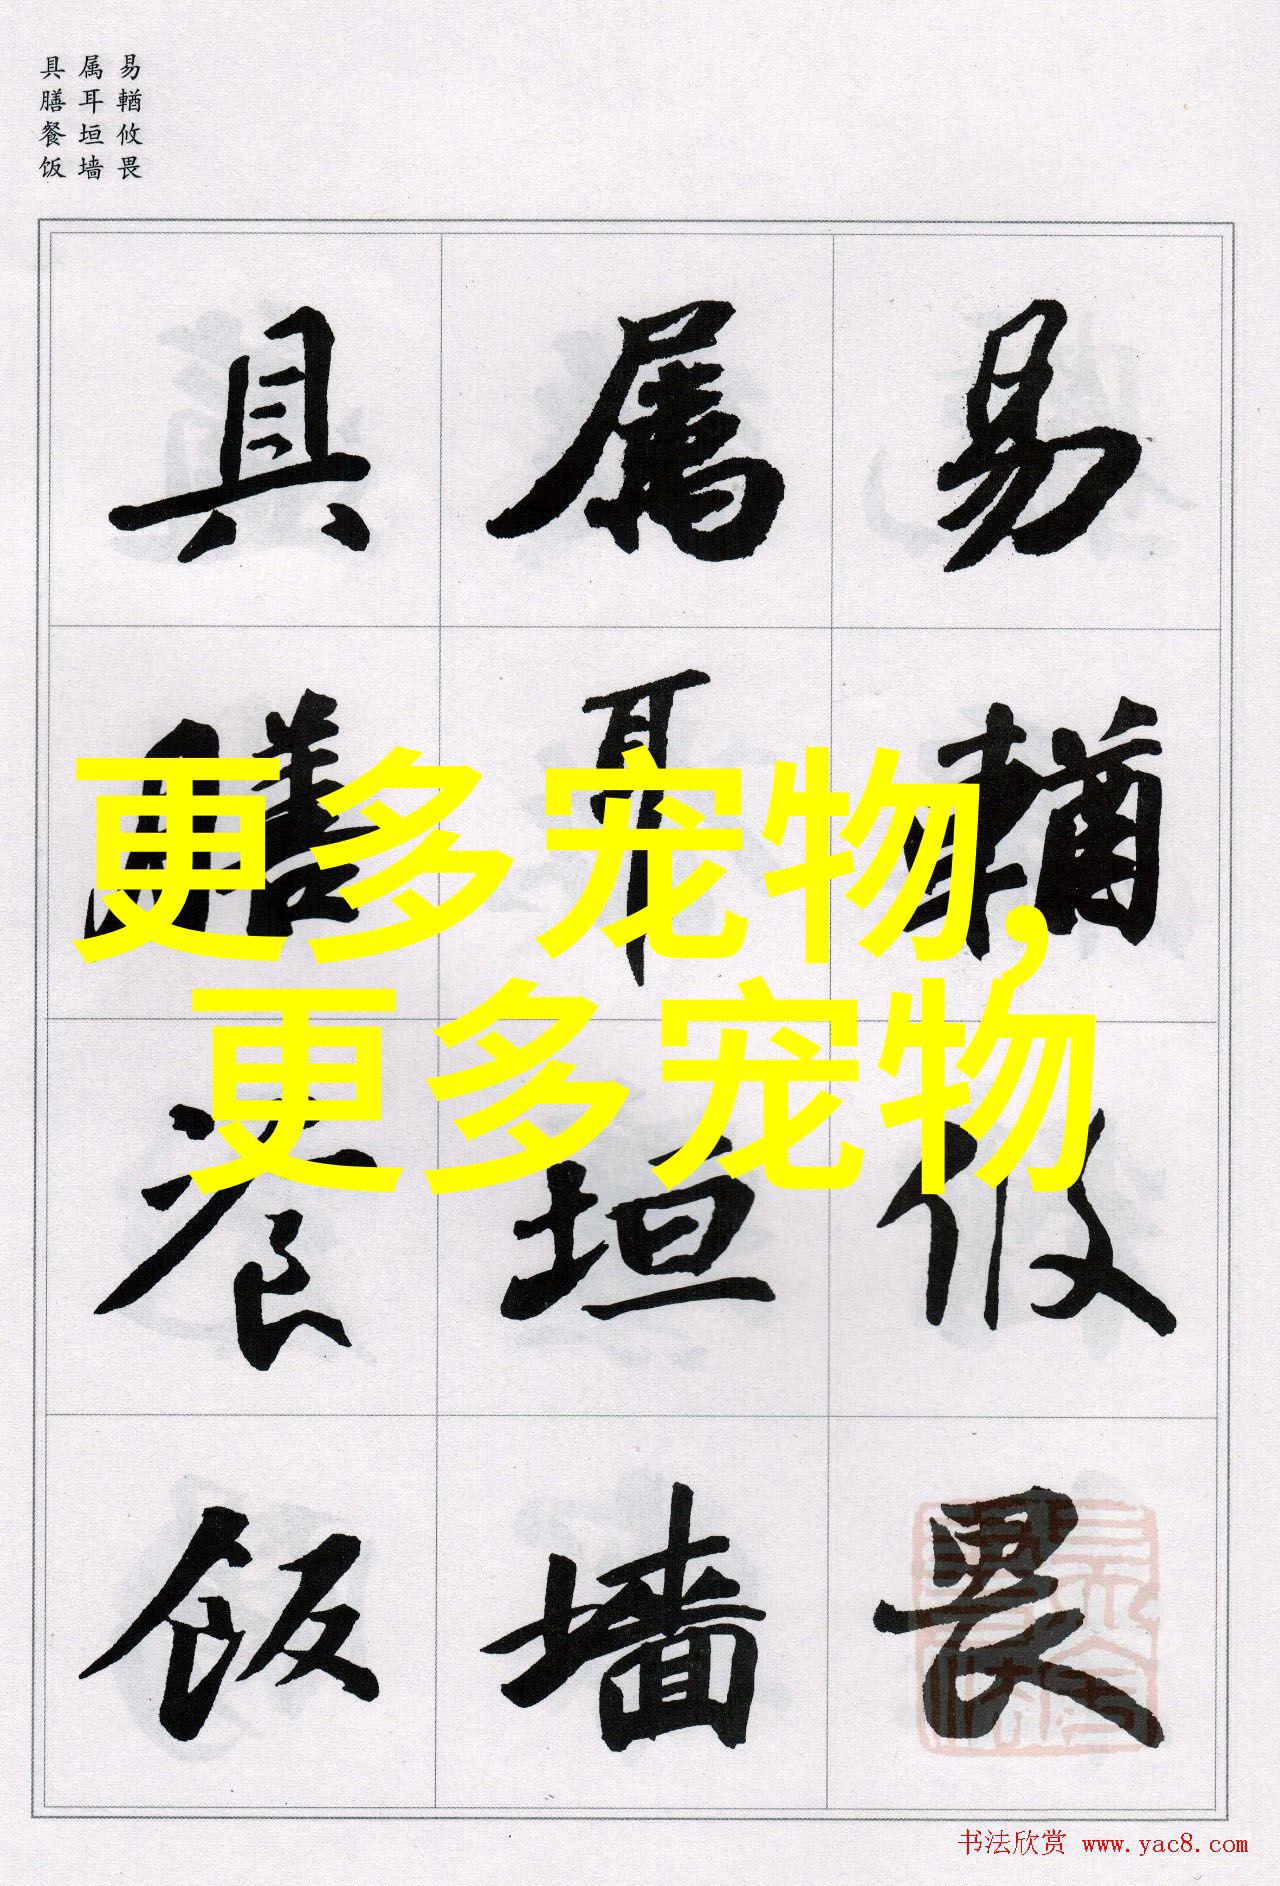 易輶攸畏
属耳垣墙
具膳餐饭
易輶攸畏
属耳垣墙
具膳飡饭
更多宠物,
更多宠物
书法欣赏 www.yac8.com